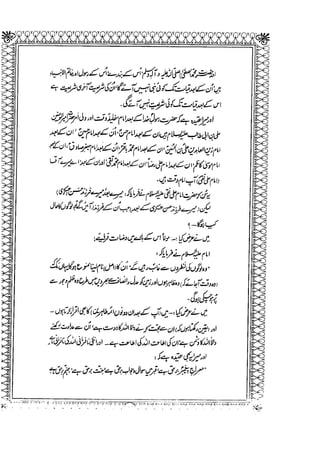 آنحضرت محمد مصطفیٰ صلی اللہ علیہ و آلہ وسلم اُس کے بندے اُس کے رسول اور خاتم الانبیاء
ہیں اُن کے بعد قیامت تک کوئی نبی نہیں آئے گا اُن کی شریعت آخری شریعت ہے
اس کے بعد قیامت تک کوئی شریعت نہیں آئے گی۔
اور میرا عقیدہ ہے کہ حضرت رسول خدا کے بعد امام خلیفہ وقت اور ولی امر حضرت امیر المومنین
علی ابن ابی طالب علیہ السلام ہیں اُن کے بعد امام حسن، اُن کے بعد امام حسین، اُن کے بعد
امام زین العابدین علی بن الحسین، اُن کے بعد امام محمد باقر، اُن کے بعد امام جعفر صادق، اُن کے
امام موسیٰ کاظم، اُن کے بعد امام علی رضا، اُن کے بعد امام محمد تقی اور اُن کے بعد اے میرے آقا
(امام علی نقی) آپ امام وقت ہیں۔
یہ سن کر حضرت امام علی نقی علیہ السلام نے فرمایا کہ: میرے بعد میرے فرزند حسن عسکری
لیکن میرے فرزند حسن عسکری کے بعد جب اُن کے فرزند آئیں گے تو لوگوں کا حال
کیسا ہو گا۔ ؟
میں نے عرض کیا:۔ مولا اس کے بارے میں وضاحت فرمائیے؛
امام علیہ السلام نے فرمایا کہ:
وہ لوگوں کی نظروں سے غائب رہیں گے، اُن کا نام لینا ممنوع ہو گا یہاں تک
وہ وقت آ جائے کہ وہ ظاہر ہوں اور زمین کو عدل و انصاف سے بھر دیں جس طرح وہ ظلم و جور سے
بھر چکی ہو گی۔
میں نے عرض کیا:۔ میں آپ کے بعد ان دونوں ائمہ طاہرین کا بھی اقرار کرتا ہوں ۔
اور یقین رکھتا ہوں کہ ان سے محبت کرنے والا اللہ کا دوست ہے، اُن سے عداوت رکھنے
والا اللہ کا دشمن ہے، ان کی اطاعت اللہ کی اطاعت ہے۔ اور انکی نافرمانی اللہ کی نافرمانی ہے
اور میرا یہ بھی عقیدہ ہے کہ:
معراج پیغمبر برحق ہے، قبر میں سوال و جواب برحق ہے، جنت برحق ہے، جہنم برحق ہے